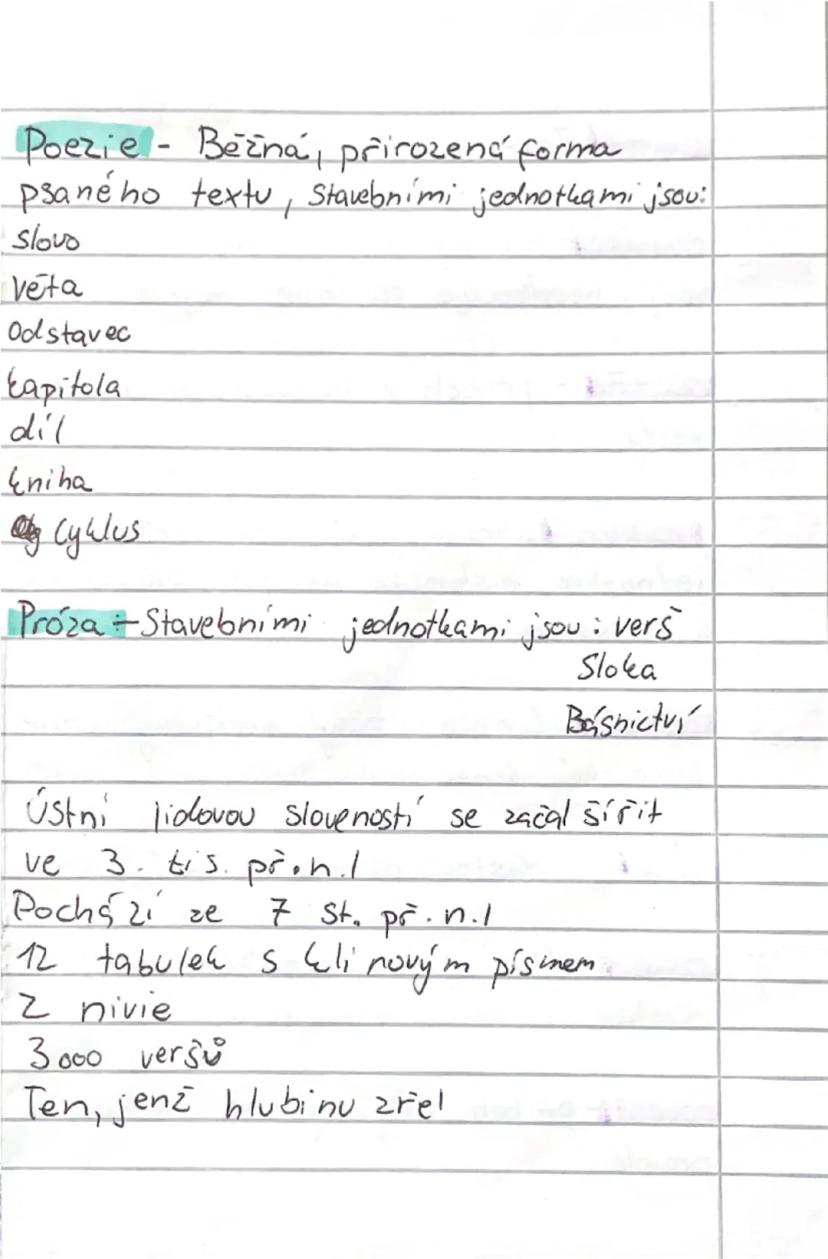 Poezie - Běžná, přirozená forma
psaného textu, Stavebními jednotkami jsou:
slovo
věta
Odstavec
kapitola
díl
kniha
Cyklus
Próza - Stavebními jednotkami jsou: verš
Sloka
Básnictví
Ústní lidovou sloveností se začal šířit
ve 3. tis. př.n.l
Pochází ze 7 st. př.n.l
12 tabulek s klínovým písmem
Z nivie
3000 veršů
Ten, jenž hlubinu zřel